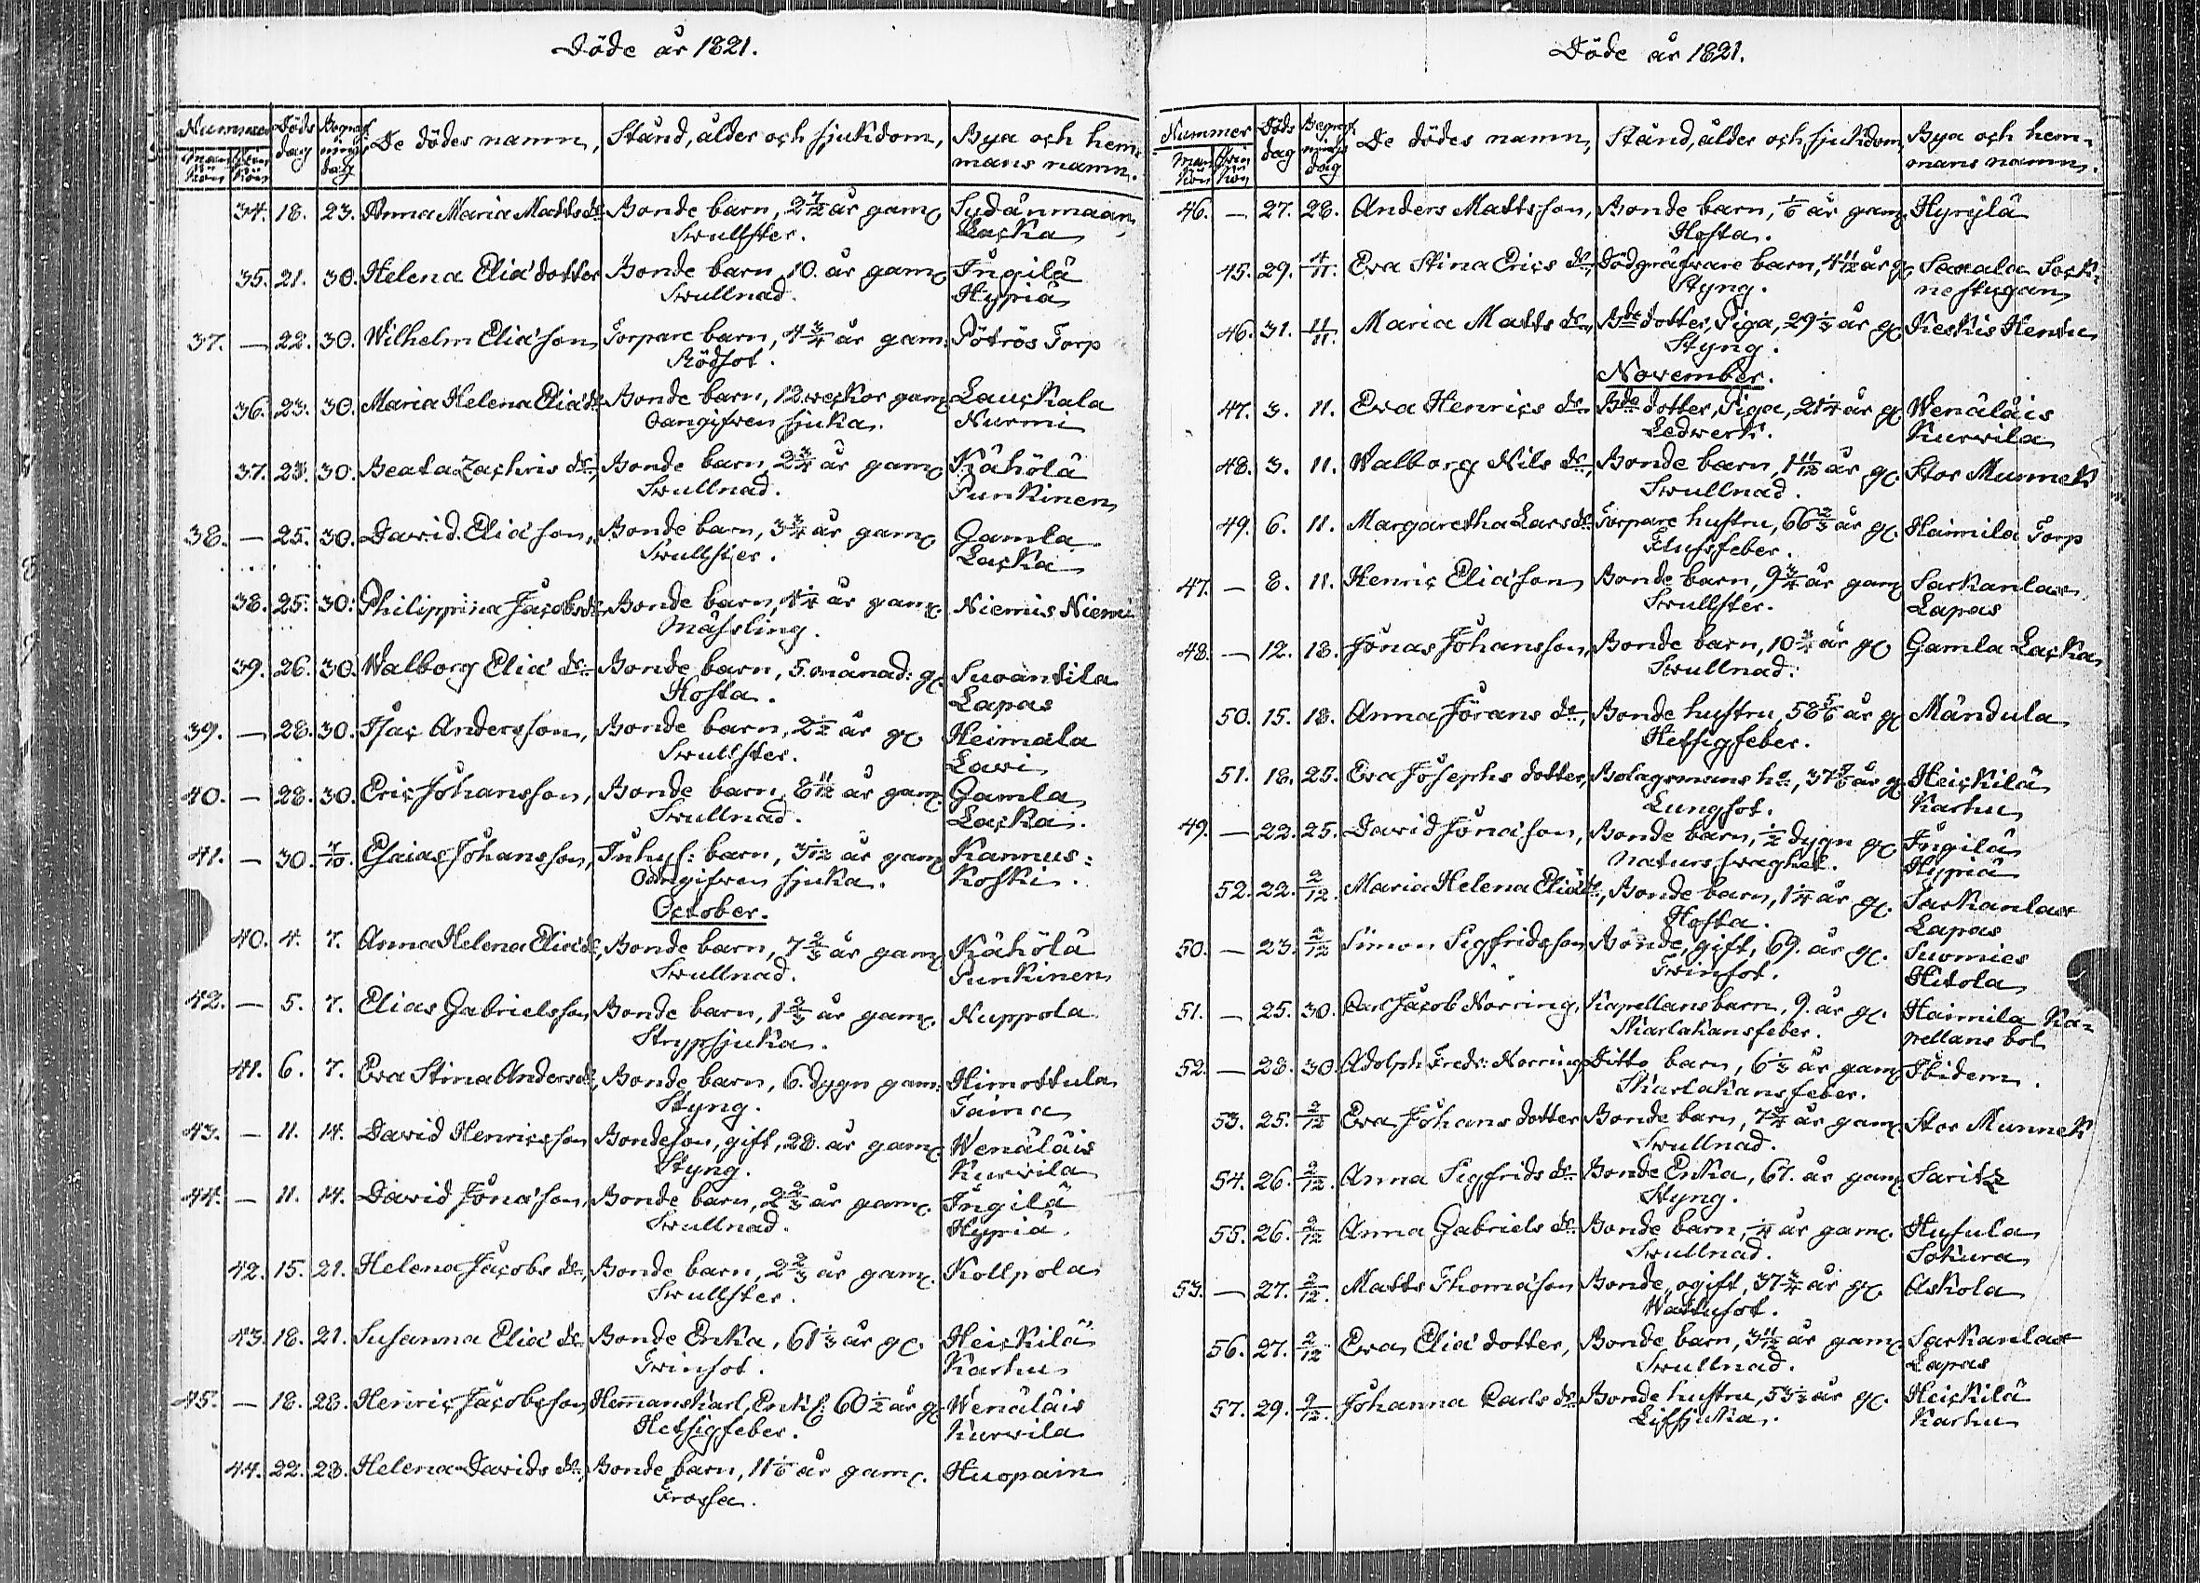 Döde år 1821.
Nummer Döds dag Begrafnings dag De dödes namn, Stånd, ålder och sjukdom, Bya och hemmans namn.
Mankön Qvinkön
34. 18. 23. Anna Maria Matts dr Bonde barn, 2 7/12 år gam. Sydänmaan,
Swullster. Lacka
35. 21. 30. Helena Elia dotter Bonde barn, 10. år gam. Ingilä
Swullnad. Hypiä
37. — 22. 30. Wilhelm Elia'son Torpare barn, 4 3/4 år gam. Pötrös Torp
Rödsot.
36. 23. 30. Maria Helena Elia'dr Bonde barn, 12. weckor gam. Lauckala
Oangifwen sjuka. Nurmi
37. 23. 30. Beata Zachris dr, Bonde barn, 2 3/4 år gam. Kähölä
Swullnad. Punkinen
38. — 25. 30. David Elia'son, Bonde barn, 3 3/4 år gam. Gamla
Swullster. Lacka
38. 25. 30. Philippina Jacobs dr, Bonde barn, 4 1/4 år gam. Niemis Niemi
Mässling.
39. 26. 30. Walborg Elia' dr Bonde barn, 5. månad: g. Suvantila
Hosta. Lapas
39. — 28. 30. Isac Andersson, Bonde barn, 2 1/2 år g. Heimala
Swullster. Lavi
40. — 28. 30. Eric Johansson, Bonde barn, 8 11/12 år gam. Gamla
Swullnad. Lacka.
41. — 30. 7/10. Esaias Johansson, Inhys: barn, 3 1/12 år gam Kannus:
Oangifwen sjuka. Koski.
October.
40. 4. 7. Anna Helena Elia'dr, Bonde barn, 7 2/3 år gam. Kähölä
Swullnad. Punkinen
42. — 5. 7. Elias Gabrielsson Bonde barn, 1 2/3 år gam. Nuppola
Strypsjuka.
41. 6. 7. Eva Stina Anders dr, Bonde barn, 6. dygn gam. Himottula
Styng. Taina
43. — 11. 14. David Henricsson Bondeson, gift, 28. år gam. Wenäläis
Styng. Kurvila
44. — 11. 14. David Jona'son, Bonde barn, 2 2/3 år gam. Ingilä
Swullnad. Hypiä.
42. 15. 21. Helena Jacobs dr, Bonde barn, 2 2/3 år gam. Kollpola
Swullster.
43. 18. 21. Susanna Elia' dr Bonde Enka, 61 1/3 år g. Heickilä
Twinsot. Karhu
45. — 18. 28. Henric Jacobsson, Hemmanskarl, Enkl: 60 1/2 år g. Wenäläis
Hetsigfeber. Kurvila
44. 22. 28. Helena Davids dr Bonde barn, 11 1/6 år gam. Huopain
Frossa.
Döde år 1821.
Nummer Döds dag Begrafnings dag De dödes namn, Stånd, ålder och sjukdom, Bya och hemmans namn.
Mankön Qvinkön
46. — 27. 28. Anders Mattsson, Bonde barn, 1/6 år gam. Hyrylä
Hosta.
45. 29. 4/11. Eva Stina Erics dr, Dödgräfvare barn, 4 11/12 år g. Saxala Sock:
Styng. nestugan
46. 31. 11/11. Maria Matts dr, Bde dotter, Piga, 29 1/3 år g. Keskis Hentu
Styng.
November.
47. 3. 11. Eva Henrics dr Bde dotter, Piga, 21 1/4 år g. Wenäläis
Ledwerk. Kurvila
48. 3. 11. Walborg Nils dr, Bonde barn, 1 11/12 år g. Stor Munnek
Swullnad.
49. 6. 11. Margaretha Lars dr Torpare hustru, 66 2/3 år g. Haimila Torp
Flussfeber.
47. — 8. 11. Henric Elia'son Bonde barn, 9 3/4 år gam. Sarkanlax
Swullster. Lapas
48. — 12. 18. Jonas Johansson, Bonde barn, 10 3/4 år g. Gamla Lacka
Swullnad.
50. 15. 18. Anna Jörans dr, Bonde hustru, 58 5/6 år g. Mändula
Hetsigfeber.
51. 18. 25. Eva Josephs dotter, Bolagsmans hu, 37 5/6 år g. Heickilä
Lungsot. Karhu
49. — 22. 25. David Jona'son, Bonde barn, 1/2 dygn g. Ingilä
Naturs swaghet. Hypiä
52. 22. 2/12. Maria Helena Elia'dr, Bonde barn, 1 1/4 år g. Sarkanlax
Hosta. Lapas
50. — 23. 2/12 Simon Sigfridsson Bonde, gift, 69. år g. Suomies
Twinsot. Hitola
51. — 25. 30. Carl Jacob Norring, Kapellans barn, 9. år g. Haimila Ka-
Skarlakansfeber. pellans bol
52. — 28. 30. Adolph Fredr: Norring Ditto barn, 6 1/3 år gam. Ibidem.
Skarlakansfeber.
53. 25. 2/12 Eva Johans dotter Bonde barn, 7 3/4 år gam. Stor Munnek
Swullnad.
54. 26. 2/12. Anna Sigfrids dr Bonde Enka, 67. år gam. Saritz
Styng.
55. 26. 2/12 Anna Gabriels dr Bonde barn, 1/4 år gam. Husula
Swullnad. Sokura
53. — 27. 2/12. Matts Thoma'son Bonde, ogift, 37 3/4 år g. Askola
Wattusot.
56. 27. 2/12 Eva Elia' dotter, Bonde barn, 3 11/12 år gam. Sarkanlax
Swullnad. Lapas
57. 29. 9/12. Johanna Carls dr Bonde hustru, 53 1/2 år g. Heickilä
Lifsjuka. Karhu